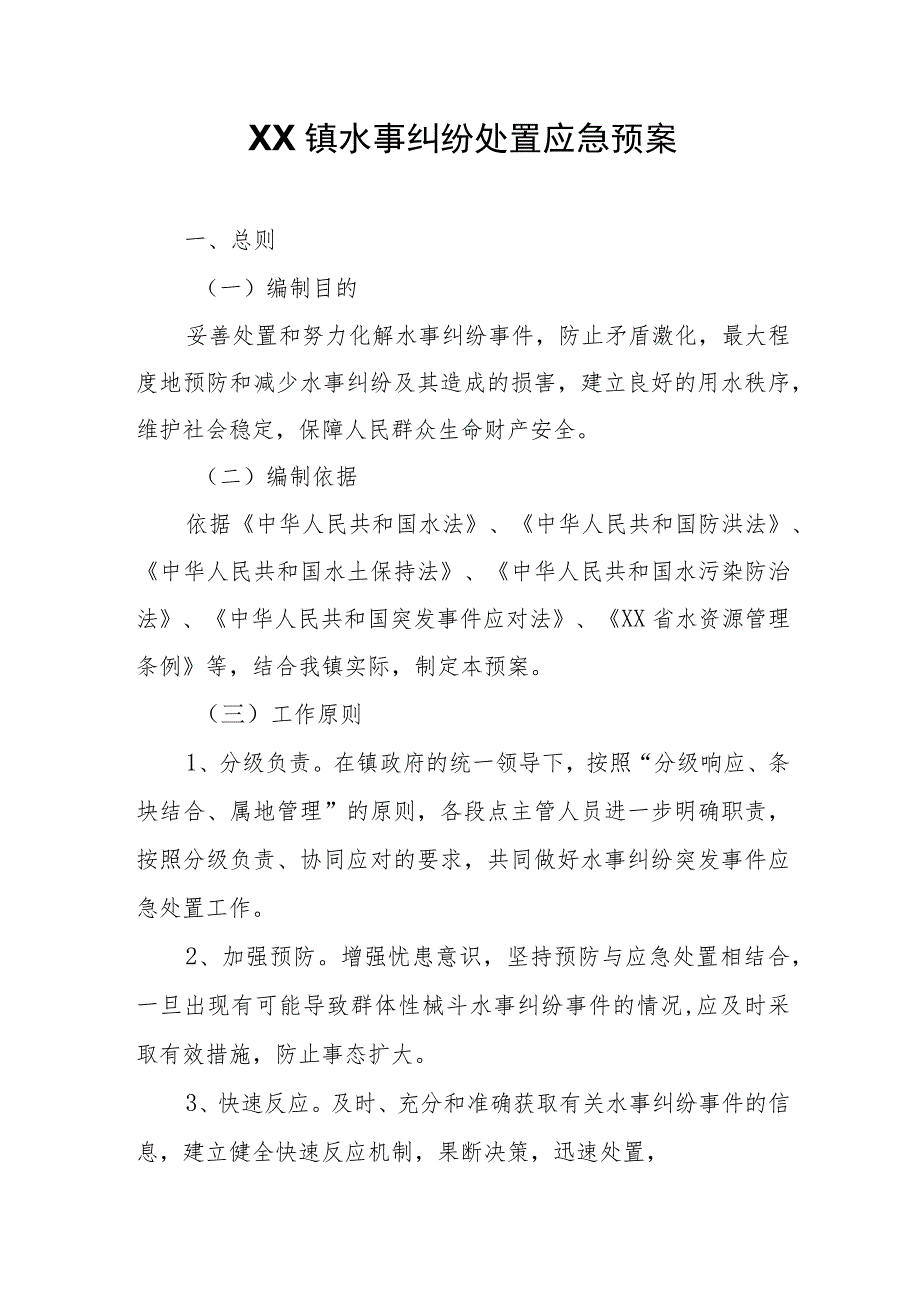 XX 镇水事纠纷处置应急预案
一、总则
（一）编制目的
妥善处置和努力化解水事纠纷事件，防止矛盾激化，最大程
度地预防和减少水事纠纷及其造成的损害，建立良好的用水秩序，
维护社会稳定，保障人民群众生命财产安全。
（二）编制依据
依据《中华人民共和国水法》、《中华人民共和国防洪法》、
《中华人民共和国水土保持法》、《中华人民共和国水污染防治
法》、《中华人民共和国突发事件应对法》、《XX 省水资源管理
条例》等，结合我镇实际，制定本预案。
（三）工作原则
1、分级负责。在镇政府的统一领导下，按照“分级响应、条
块结合、属地管理”的原则，各段点主管人员进一步明确职责，
按照分级负责、协同应对的要求，共同做好水事纠纷突发事件应
急处置工作。
2、加强预防。增强忧患意识，坚持预防与应急处置相结合，
一旦出现有可能导致群体性械斗水事纠纷事件的情况,应及时采
取有效措施，防止事态扩大。
3、快速反应。及时、充分和准确获取有关水事纠纷事件的信
息，建立健全快速反应机制，果断决策，迅速处置，